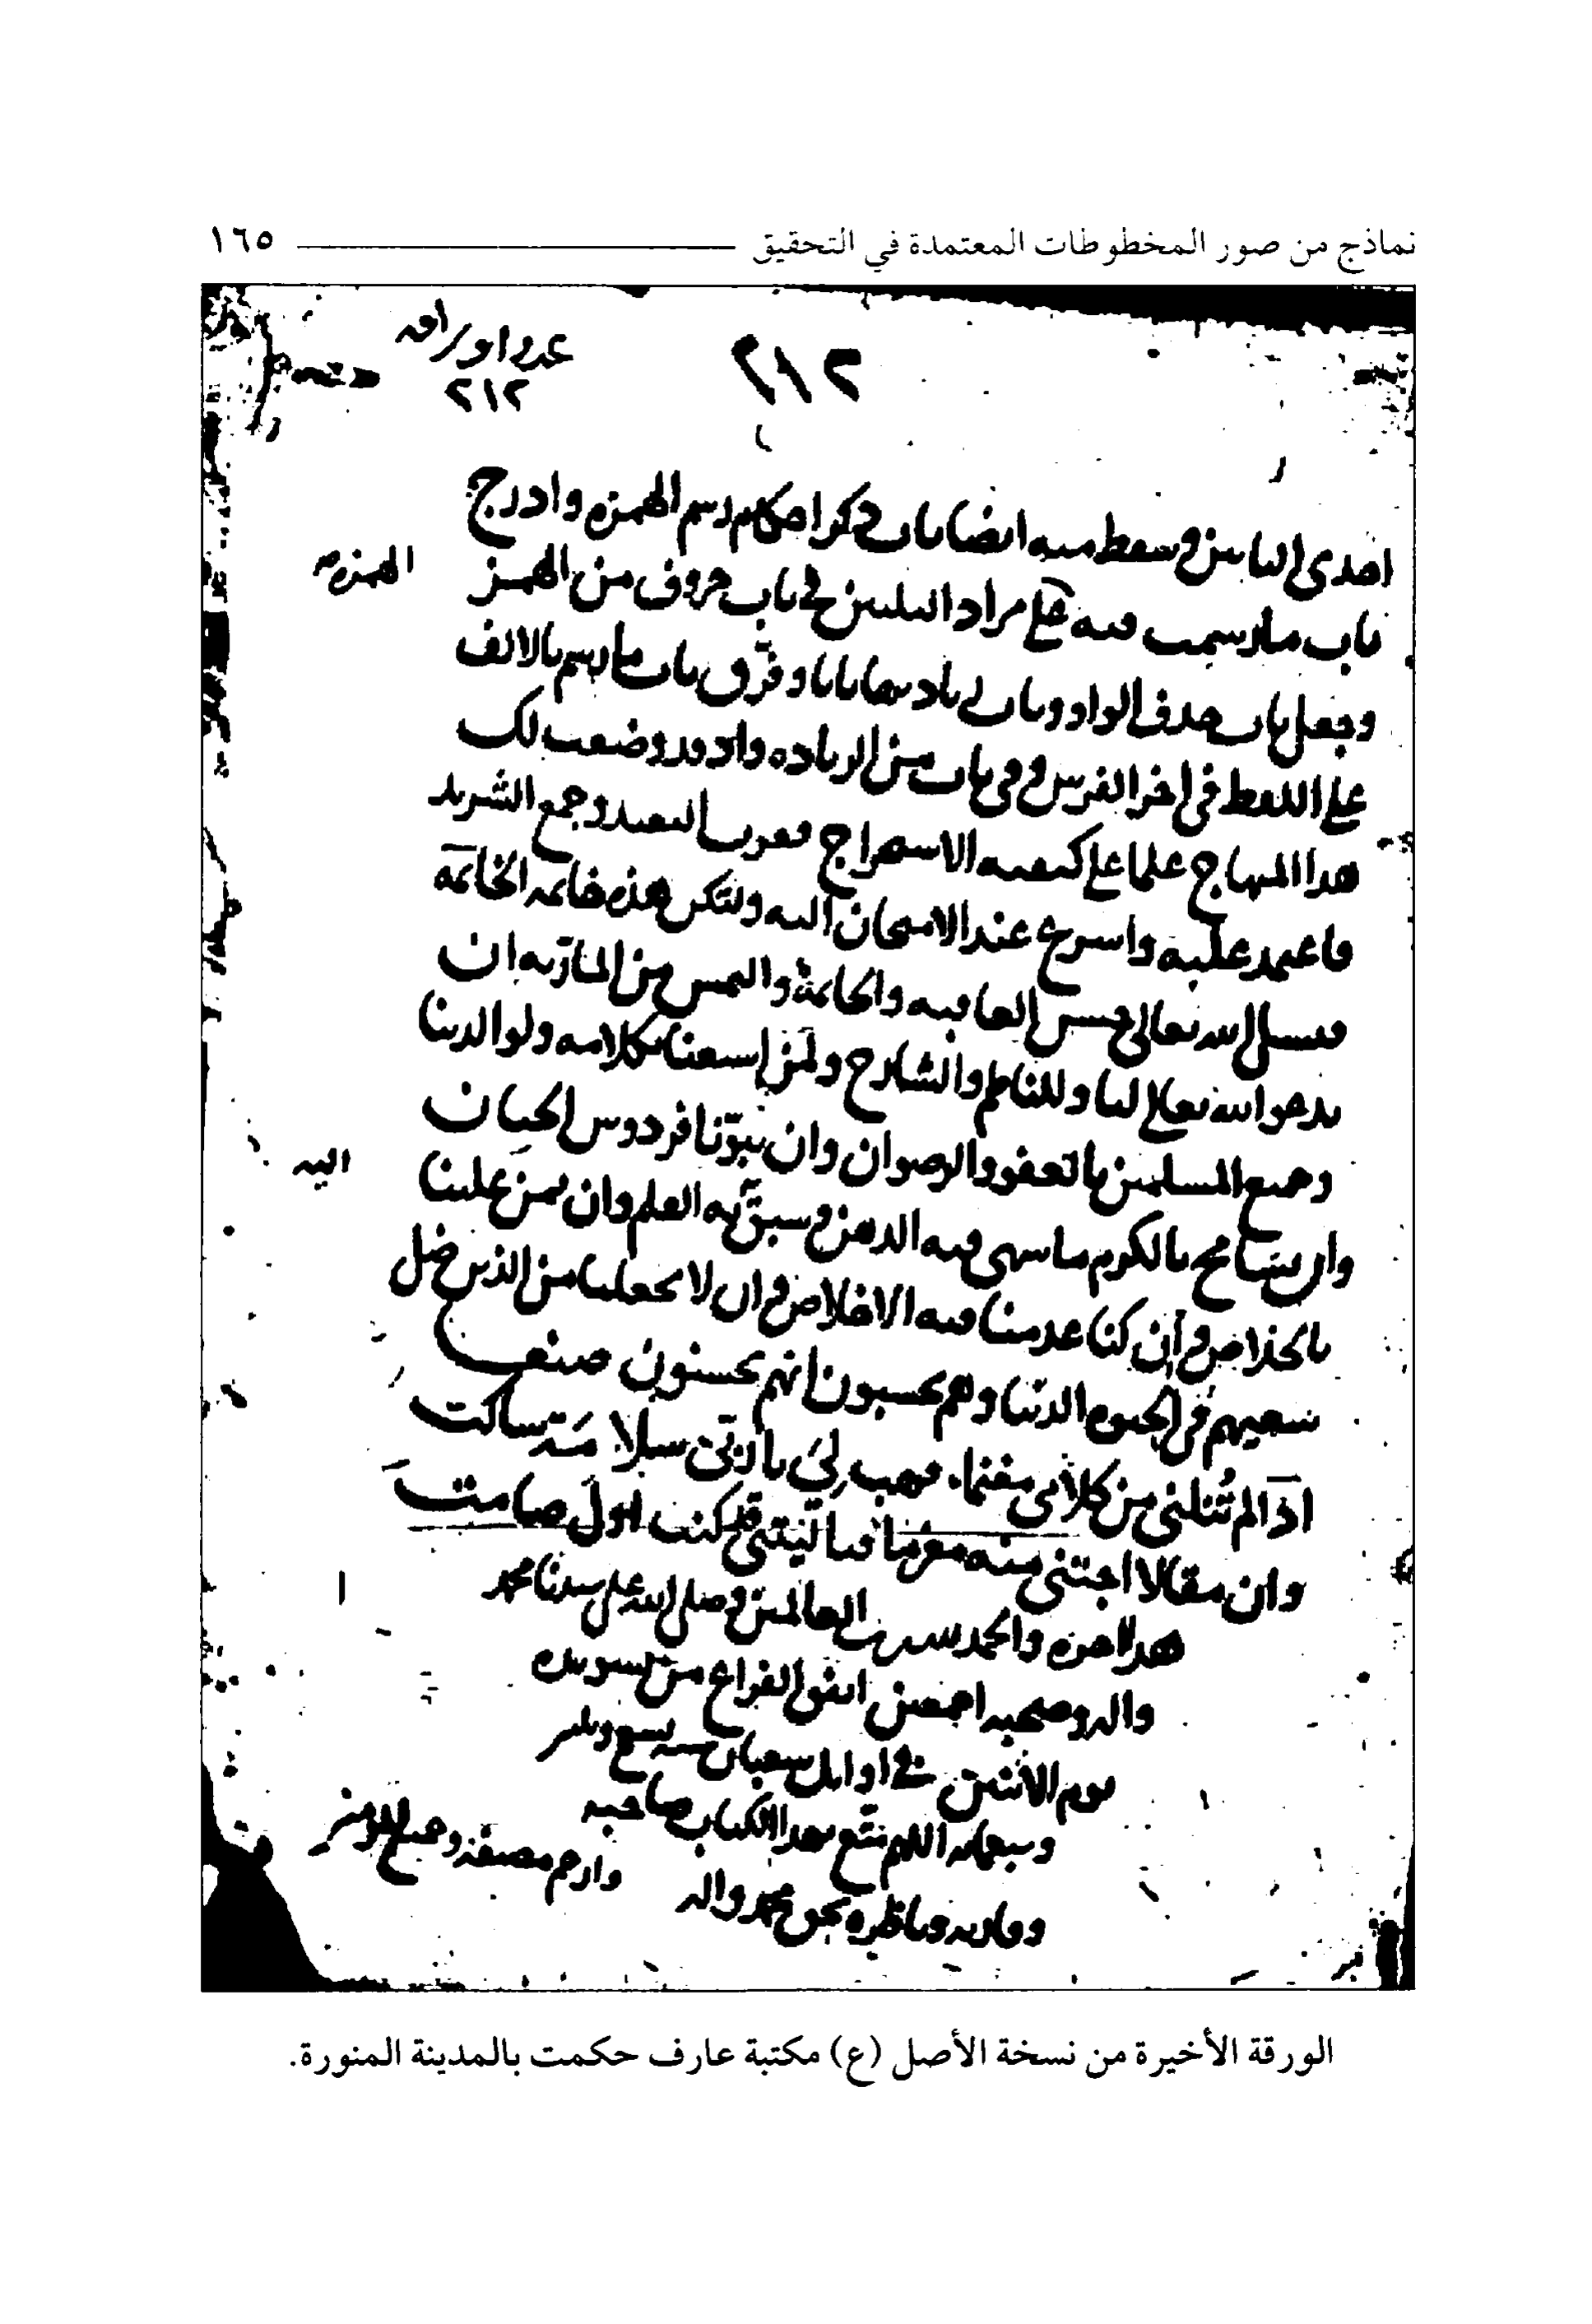 نماذج من صور المخطوطات المعتمدة في التحقيق ١٦٥
عدد اوراقه
٢١٢
٢١٢
احدى البابين وسقط منه ايضا باب ذكر احكام رسم الهمزه وادرج
باب ما رسمت فيه على مراد التليين في باب حروف من الهمز
الهمزه
وجعل باب حذف الواو وباب زيادتها بابا وفرق باب ما رسم بالالف
على اللفظ في اخر الفرش وفي باب من الزياده واذ قد وضعت لك
هذا المنهاج علما على كيفيه الاستخراج فقرب البعيد وجمع الشريد
فاعتمد عليه واسرع عند الامتحان اليه ولتكن هذه خاتمه الخاتمة
فنسال الله تعالى حسن العاقبه والخاتمة والتمس من المارّ به ان
يدعو الله تعالى لنا وللناظم والشارح ولمن اسمعنا كلامه ولوالدينا
وجميع المسلمين بالعفو والرضوان وان يبوّنا فردوس الجنان
اليه
وان يتسامح بالكرم ما سهى فيه الذهن وسبق به القلم وان يمن علينا
بالخلاص وان كنا عدمنا فيه الاخلاص وان لا يجعلنا من الذين ضل
سعيهم في الحيوه الدنيا وهم يحسبون انهم يحسنون صنعا
اذا لم تُنلني من كلامي مغنما فهب لي يا ربي سبلا مَـ ساكت
وان مقالا اجتني منه مغرما فيا ليتني قد كنت اول صامت
هذا اخره والحمد لله رب العالمين وصلى الله على سيدنا محمد
واله وصحبه اجمعين اتفق الفراغ من تسويده
يوم الاثنين في اوايل شعبان سنه تسع
وسبعمايه اللهم متّع بهذا الكتاب صاحبه
وارحم مصنفه وجميع المومنين
وقاريه وناظره بحق محمد واله
الورقة الأخيرة من نسخة الأصل (ع) مكتبة عارف حكمت بالمدينة المنورة.